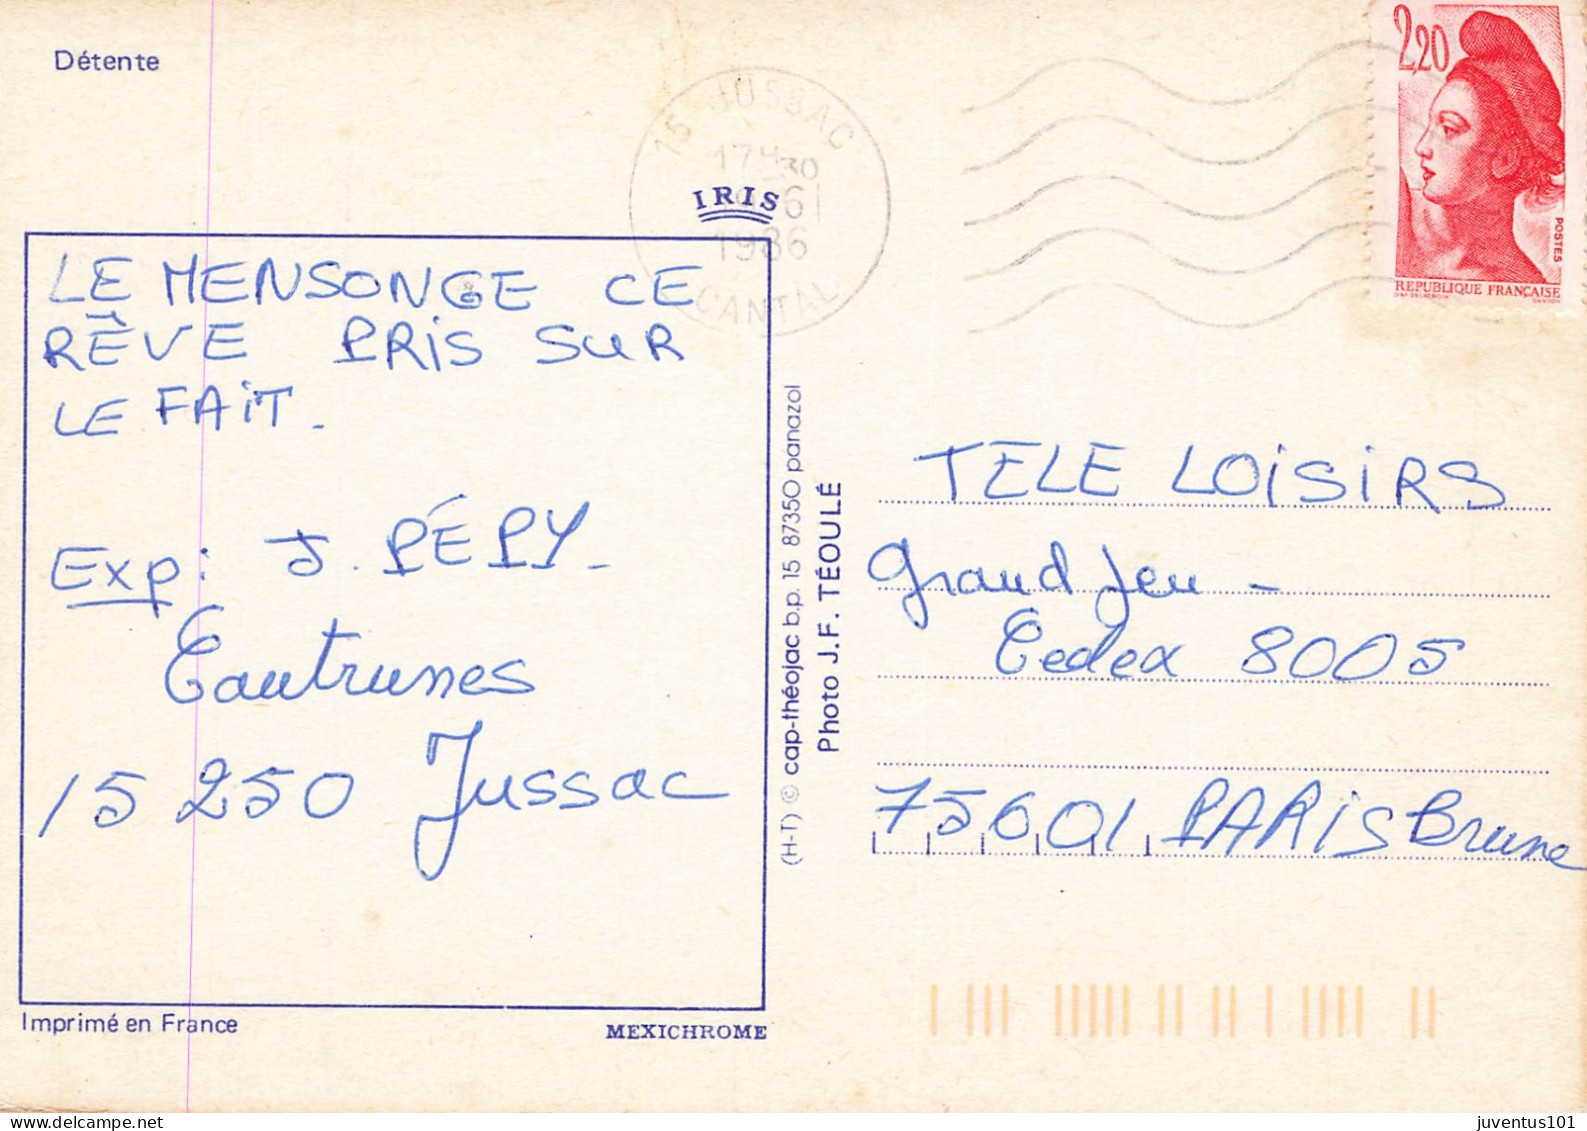 Détente
15 JUSSAC
17H30
6
1986
CANTAL
2,20
POSTES
REPUBLIQUE FRANÇAISE
IRIS
LE MENSONGE CE
RÊVE PRIS SUR
LE FAIT.
Exp: J. PÉPY.
Cautrunes
15 250 Jussac
(H-T) © cap-théojac b.p. 15 87350 panazol
Photo J.F. TÉOULÉ
TELE LOISIRS
Grand Jeu -
Cedex 8005
75601 PARIS Brune
Imprimé en France
MEXICHROME
juventus101